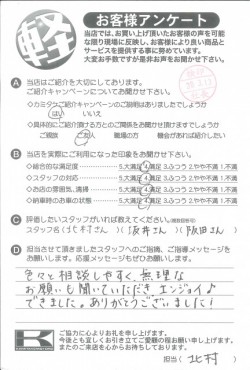 軽
お客様アンケート
当店では、お買い上げ頂いたお客様の声を可能
な限り現場に反映し、お客様により良い商品と
サービスを提供する事に努めています。
大変お手数ですが是非お声をお聞かせ下さい。
A 当店はご紹介を大切にしております。
ご紹介キャンペーンについてお聞かせ下さい。
◇カミタケご紹介キャンペーンのご説明はありましたでしょうか
はい いいえ
◇具体的にご紹介頂ける方とのご関係をお聞かせ下さい
ご親族 ご友人 職場の方 機会があれば紹介したい
B 当店を実際にご利用になった印象をお聞かせ下さい。
◇総合的な満足度 5.大満足 4.満足 3.ふつう 2.やや不満 1.不満
◇スタッフの対応 5.大満足 4.満足 3.ふつう 2.やや不満 1.不満
◇お店の雰囲気、清掃 5.大満足 4.満足 3.ふつう 2.やや不満 1.不満
◇納車時のお車の状態 5.大満足 4.満足 3.ふつう 2.やや不満 1.不満
C 評価したいスタッフがいれば教えてください。
スタッフ名
さん
さん
さん
D 担当させて頂きましたスタッフへのご指摘、ご指導メッセージを
お願いします。応援メッセージもぜひお願いします。
色々と相談しやすく、無理な
お願いも聞いていただき エンジョイ♪
できました。ありがとうございました!
K
ご協力に心よりお礼を申し上げます。
今後とも宜しくお引き立てご愛顧の程お願い申し上げます。
またのご来店を心からお待ちしております。
担当( 北村 )